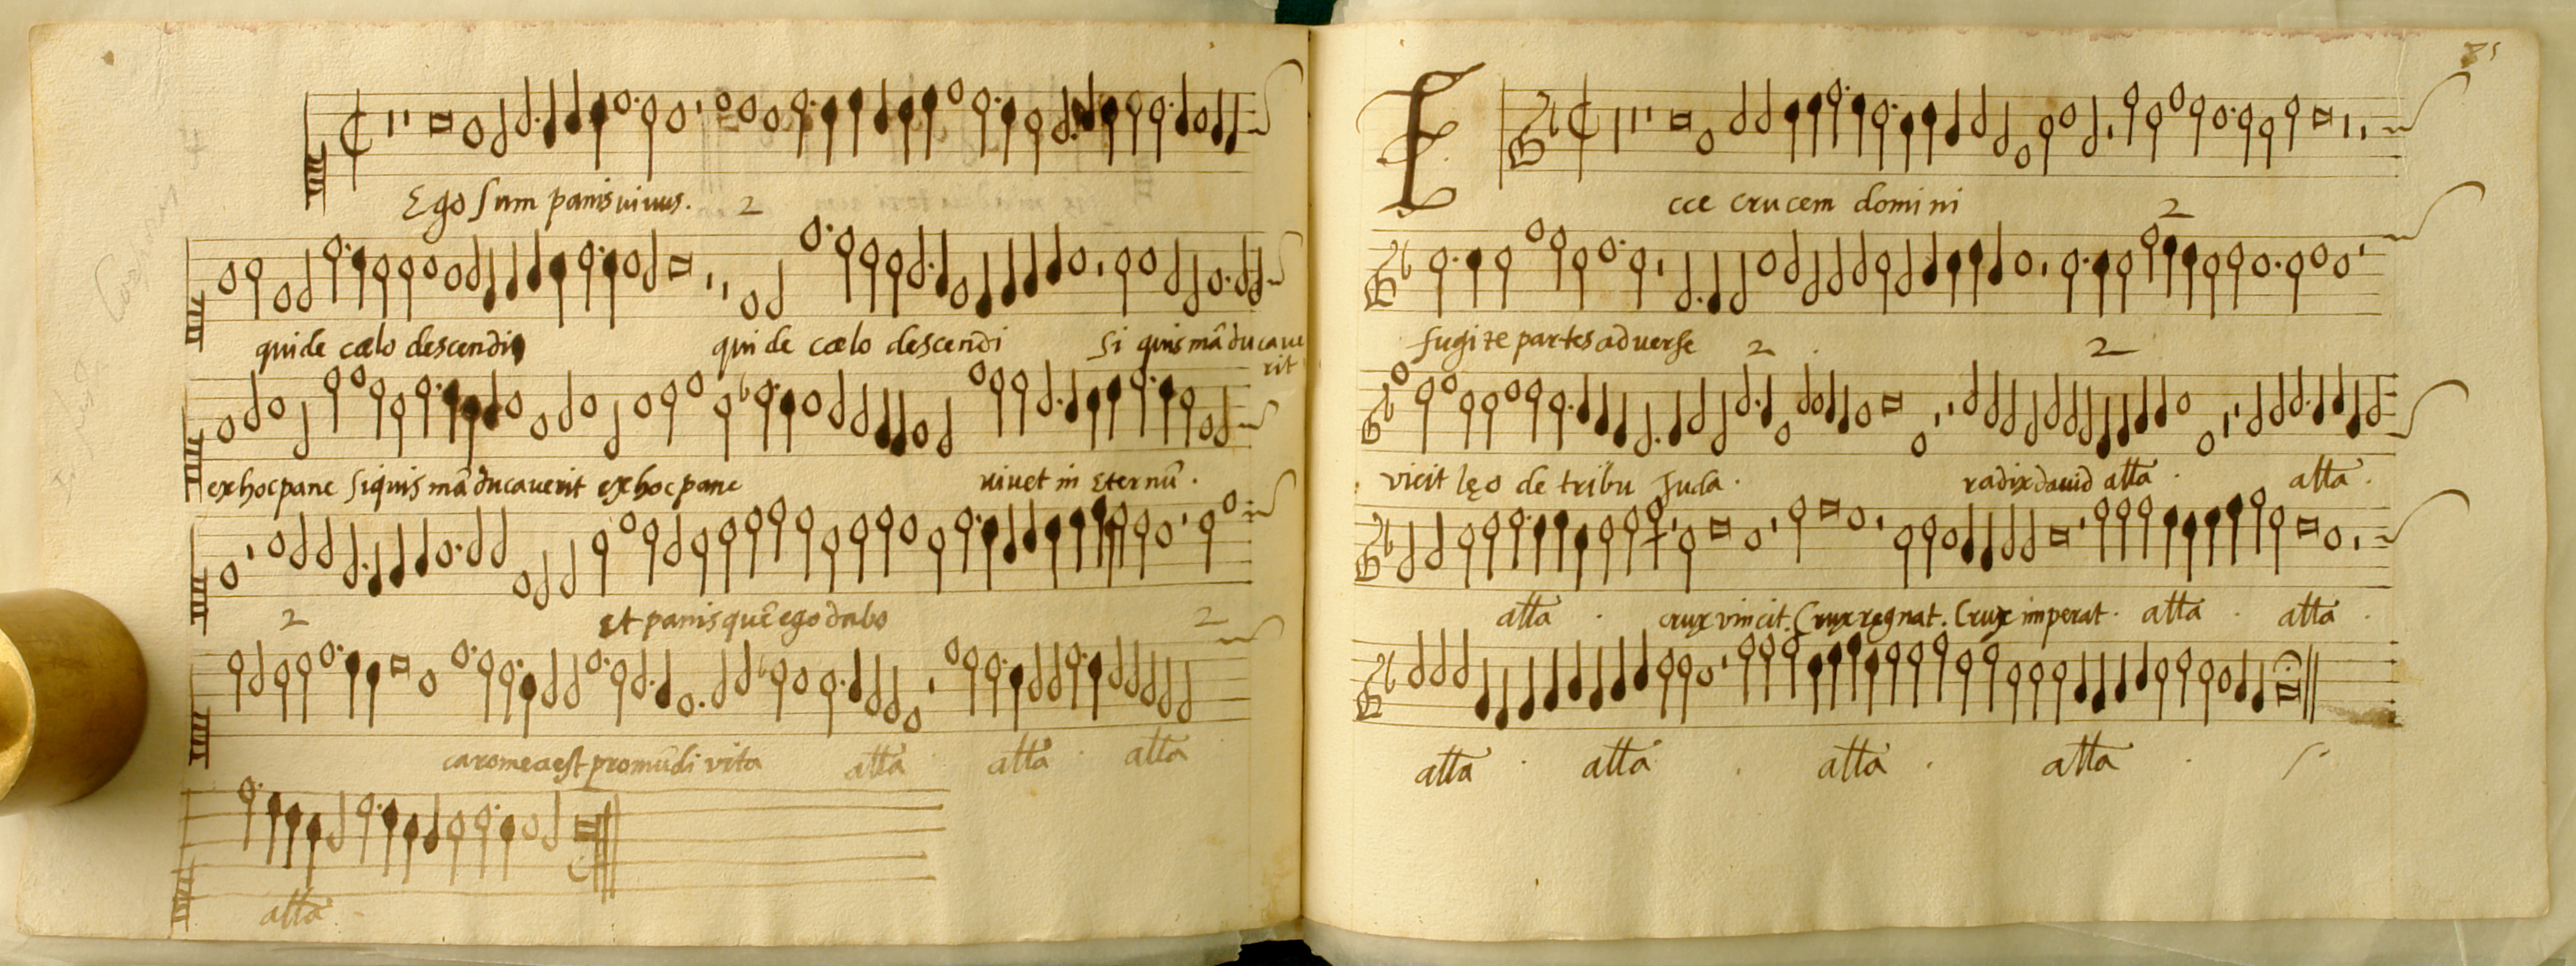 Ego sum panis vivus. 2
qui de cælo descendi qui de cælo descendi Si quis mãducave
rit
ex hoc pane Si quis mãducaverit ex hoc pane vivet in eternũ.
2 et panis quẽ ego dabo 2
caro mea est pro mũdi vita alła alła alła
alła
85
Ecce crucem domini 2
fugite partes adverse 2 2
vicit lęo de tribu Juda. radix david alła. alła.
alła. crux vincit. Crux regnat. Crux imperat. alła. alła.
alła. alła. alła. alła.